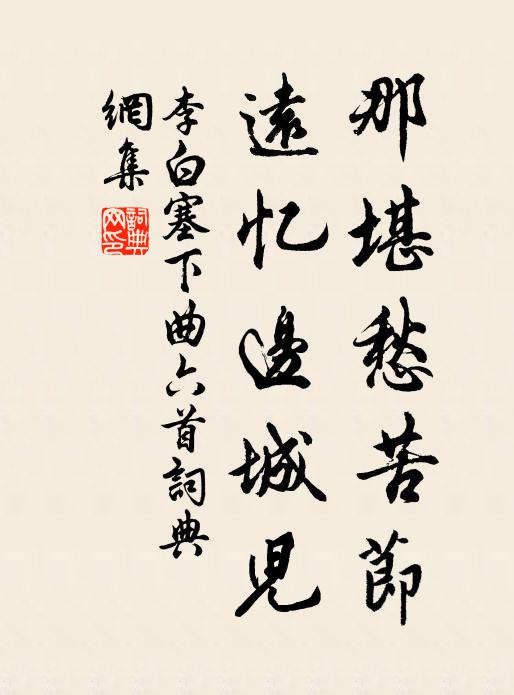 那堪愁苦節
遠忆邊城兒
李白塞下曲六首詞典
網集
詞典
网印